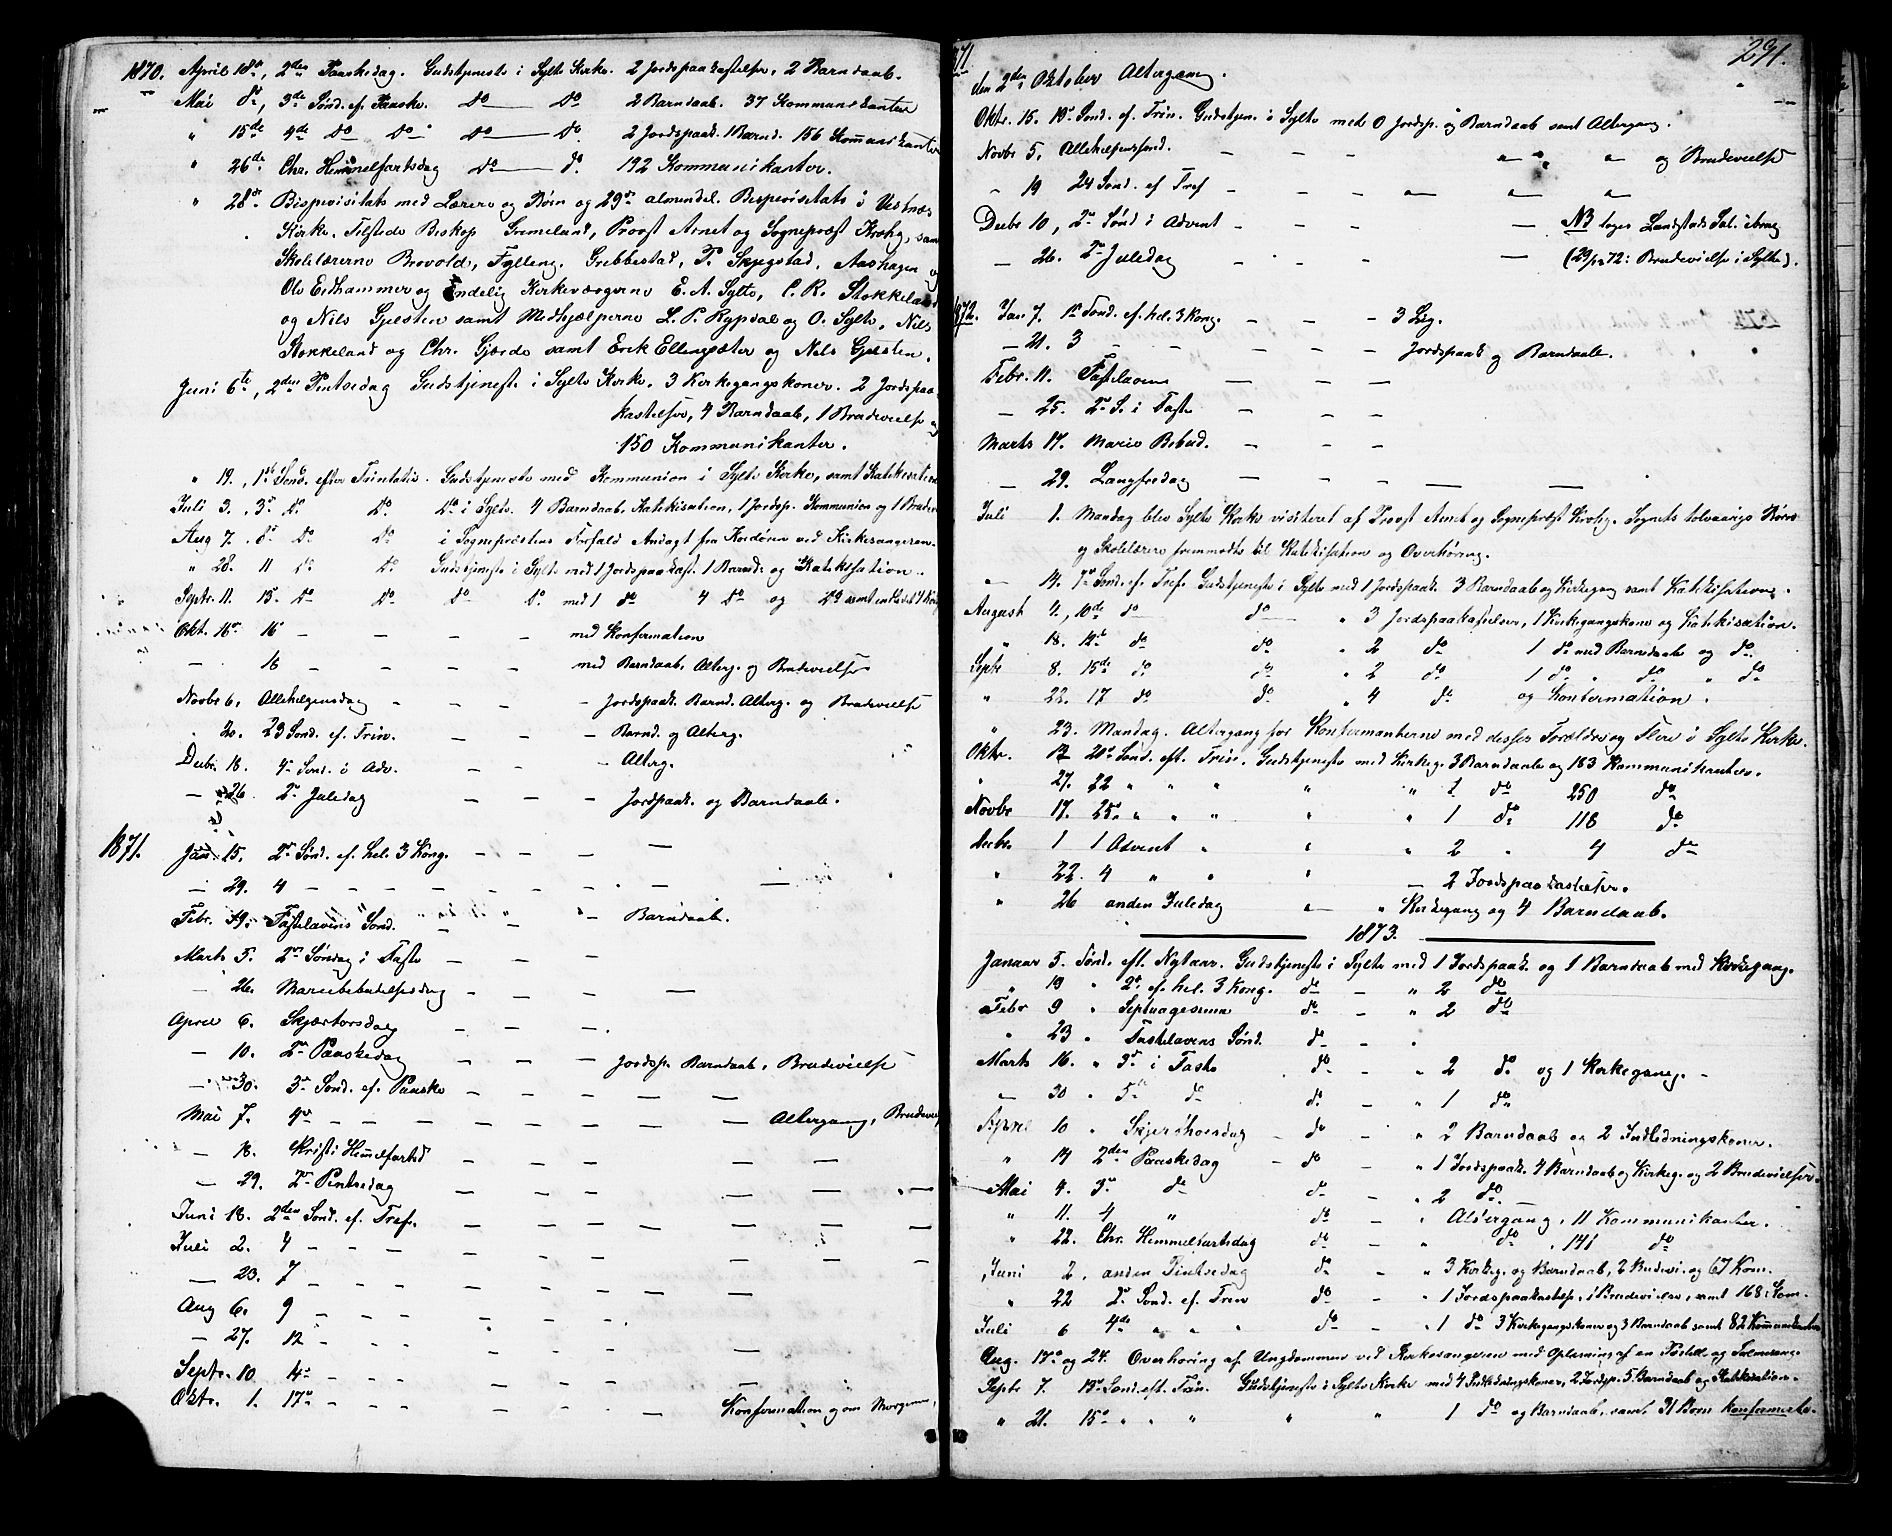 1870. April 18de, 2den Paaskedag. Gudstjeneste i Sylte Kirke. 2 Jordspaakastelser, 2 Barndaab.
Mai 8de, 3de Sønd. ef. Paaske. do — do 2 Barndaab. 37 Kommunikanter
" 15de 4de do do do — do. 2 Jordspaak. 1 Barnd. 156 Kommunikanter
" 26de Chr. Himmelfartsdag do — do. 192 Kommunikanter.
" 28de Bispevisitats med Lærere og Børn og 29de almindel. Bispevisitats i Vestnæs
Kirke. Tilstede Biskop Grimelund, Proost Arnet og Sognepræst Krohg, samt
Skolelærerne Brovold, Fylling, Grebbestad, P. Skjegstad, Aashagen og
Ole Eidhammer og Endelig Kirkeværgerne E. A. Sylte, C. R. Stokkeland
og Nils Gjelsten samt Medhjælperne L. P. Rypdal og O. Sylte, Nils
Stokkeland og Chr. Gjærde samt Erik Ellingsæter og Nils Gjelsten.
Juni 6te, 2den Pintsedag Gudstjeneste i Sylte Kirke. 3 Kirkegangskoner. 2 Jordspaa-
kastelser, 4 Barndaab, 1 Brudevielse og
150 Kommunikanter.
" 19., 1ste Sønd. efter Trinitatis. Gudstjeneste med Kommunion i Sylte Kirke, samt Katikisation
Juli 3., 3de do do do i Sylte. 4 Barndaab, Katikisation, 1 Jordsp. Kommunion og 1 Brudev
Aug 7. 8de do do i Sognepræstens Forfald Andagt fra Kordøren ved Kirkesangeren.
" 28. 11 do do Gudstjeneste i Sylte med 1 Jordspaakast. 1 Barnd. og Katikisation.
Septr. 11. 13. do do do do. med 1 do 4 do og do samt
Okt. 16de 16 — — — — med Konfirmation
— 16 — — — — med Barndaab, Alterg. og Brudevielse
Novbr 6, Allehelgensdag — — — Jordspaak. Barnd. Alterg. og Brudevielse
" 20. 23 Sønd. ef. Trin. — — — Barnd. og Alterg.
Debr. 18. 4de Sønd. i Adv. — — — Alterg.
— 26. 2de Juledag — — — Jordspaak. og Barndaab.
1871. Jan. 15. 2de Sønd. ef. hel. 3 Kong. — — — —
— 29. 4 — — — — — —
Febr. 19. Fastelavens Sønd. — — — Barndaab.
Marts 5. 2den Søndag i Faste — — —
— 26. Mariæbebudelsesdag — — — —
April 6. Skjærtorsdag — — —
— 10. 2de Paaskedag — — — Jordsp. Barndaab, Brudevielse
— 30. 3de Sønd. ef. Paaske — — — — —
Mai 7. 4de — — — — — — Altergang, Brudeviels
— 18. Kristi Himmelfartsd — — — — —
— 29. 2de Pintsedag — — — — —
Juni 18. 2den Sønd. ef. Tref. — — — — —
Juli 2. 4 — — — — — — —
— 23. 7 — — — — — — —
Aug 6. 9 — — — — — — —
— 27. 12 — — — — — — —
Septr. 10 14de — — — — — — —
Oktr. 1. 17de — — — — — — Konfirmation og om Morgenen,
291.
71 den 2den Oktober Altergang.
Oktr. 15. 19de Sønd. ef. Trin. Gudstjen. i Sylte med 0 Jordsp. og Barndaab samt Altergang.
Novbr 5. Allehelgenssønd. — — — " " " og Brudevielse
" 19 24 Sønd. ef Tref — — — " " "
Debr 10, 2de Sønd i Advent — — — — NB toges Landstads Sal. i brug
— 26. 2de Juledag — — — — (29/12 72: Brudevielse i Sylte).
1872. Jan 7. 1ste Sønd. ef. hel. 3 Kong. — — — 3 Lig.
— 21. 3 — — — — — Jordspaak og Barndaab.
Febr. 11. Fastelavens — — —
— 25. 2de S. i Faste — — —
Marts 17. Mariæ Bebud. — — —
— 29. Langfredag — — — — —
Juli 1. Mandag blev Sylte Kirke visiteret af Proost Arnet og Sognepræst Krohg. Sognets tolvaarige Børn
og Skolelærere fremmødte til Katikisation og Overhøring.
" 14. 7de Sønd. ef. Tref. Gudstjeneste i Sylte med 1 Jordspaak. 3 Barndaab og Kirkegang samt Katikisation.
August 4, 10de do do " 3 Jordspaakastelser, 1 Kirkegangskone og Katikisation.
" 18. 12te do do " 2 do 1 do med Barndaab og do.
Septr 8. 15de do do " 2 do 1 do " do " do
" 22. 17 do do " 4 do og Konfirmation.
" 23. Mandag. Altergang for Konfirmanterne med desses Forældre og Flere i Sylte Kirke.
Oktr. 13 20de Sønd. eft. Trin. Gudstjeneste med Kirkeg. 3 Barndaab og 183 Kommunikanter.
" 27. 22 " " " " " 1 do 250 do
Novbr 17. 25de " " " " " 1 do 118 do
Decbr. 1 1 Advent " " " 2 " 4 do
" 22. 4 " " " — 2 Jordspaakastelser.
" 26 anden Juledag " — " Kirkegang og 4 Barndaab.
1873.
Januar 5. Sønd. eft. Nytaar. Gudstjeneste i Sylte med 1 Jordspaak. og 1 Barndaab med Kirkegang.
" 19 " 2de ef. hel. 3 Kong. do — " 2 do
Febr 9 " Septuagesima do — " 2 do
" 23 " Fastelavens Sønd. do — "
Marts 16. " 3de i Faste do — " 2 do og 1 Kirkegang. —
" 30 " 5te do do. — " 1 do
April 10 " Skjærthorsdag — do — " 2 Barndaab og 2 Indledningskoner.
" 14 2den Paaskedag — do — " 1 Jordspaak. 4 Barndaab og Kirkeg. og 2 Brudevielser.
Mai 4. 3de do do — " 2 do.
" 11. 4 " do — " Altergang, 11 Kommunikanter.
" 22. Chr. Himmelfartsdag do — " do " 141 do
Juni 2. anden Pintsedag do — " 3 Kirkeg. og Barndaab, 2 Brudevi. og 67 Kom.
" 22 2de Sønd. ef. Trin do — " 1 Jordspaakastelse, 1 Brudevielse, samt 168 Kom.
Juli 6 4de " " " do — " 1 do 3 Kirkegangskoner og 3 Barndaab samt 82 Kommunikanter
Aug. 17de og 24. Overhøring af Ungdommen ved Kirkesangeren med Oplæsning af en Postill og Salmesang.
Septr 7. 13de Sønd. eft. Trin. Gudstjeneste i Sylte Kirke med 4 Indledningskoner, 2 Jordsp. 5 Barndaab og Katikisation.
" 21. 15de " " " " " 1 do og Barndaab, samt 31 Børn konfirmerte.